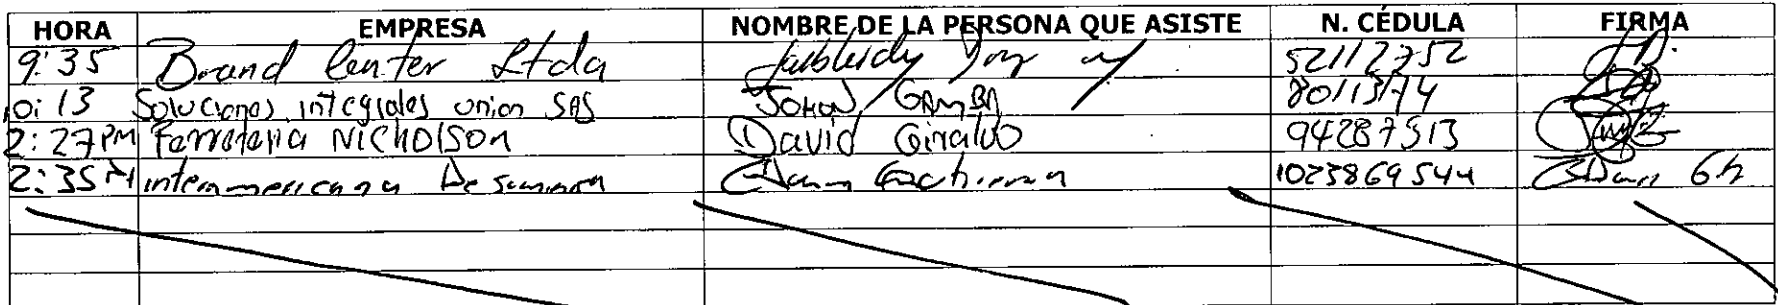 HORA EMPRESA NOMBRE DE LA PERSONA QUE ASISTE N. CÉDULA FIRMA
9:35 Brand Center Ltda 52112752
0:13 Soluciones integrales union SAS JOHON GAMBA 80113174
2:27 PM Ferreteria NICHOLSON David Giraldo 94287513
2:35 PM interamericana De 1023869544